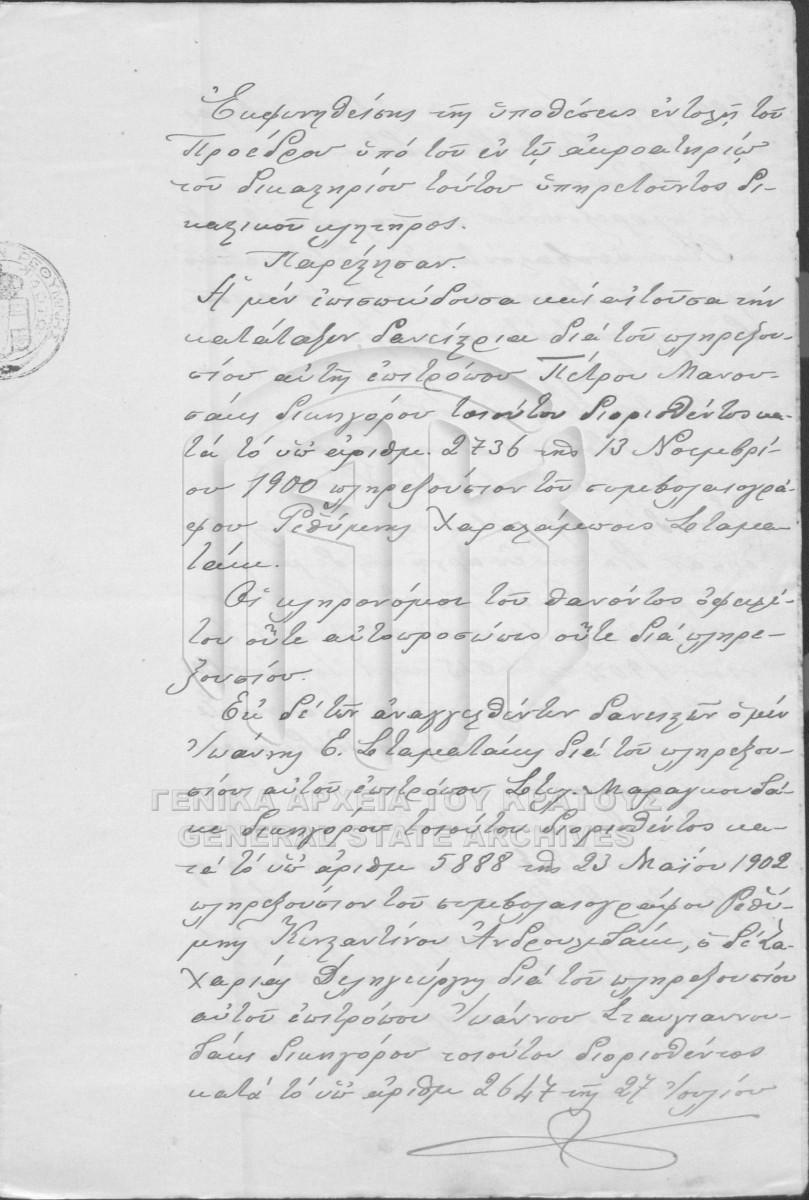 Ἐκφωνηθείσης τῆς ὑποθέσεως ἐντολῇ τοῦ
Προέδρου ὑπό τοῦ ἐν τῷ ἀκροατηρίῳ
τοῦ δικαστηρίου τούτου ὑπηρετοῦντος δι-
καστικοῦ κλητῆρος.
Παρέστησαν.
Ἡ μέν ἐπισπεύδουσα καί αἰτοῦσα τήν
κατάταξιν δανείστρια διά τοῦ πληρεξου-
σίου αὐτῆς ἐπιτρόπου Πέτρου Μανου-
σάκι δικηγόρου τοιούτου διορισθέντος κα-
τά τό ὑπ' ἀριθμ. 2736 τῆς 13 Νοεμβρί-
ου 1900 πληρεξούσιον τοῦ συμβολαιογρά-
φου Ρεθύμνης Χαραλάμπους Σταμα-
τάκι.
Οἱ κληρονόμοι τοῦ θανόντος ὀφειλέ-
του οὔτε αὐτοπροσώπως οὔτε διά πληρε-
ξουσίου.
Ἐκ δέ τῶν ἀναγγελθέντων δανειστῶν ὁ μέν
Ἰωάννης Ε. Σταματάκις διά τοῦ πληρεξου-
σίου αὐτοῦ ἐπιτρόπου Στυλ. Μαραγκουδά-
κι δικηγόρου τοιούτου διορισθέντος κα-
τά τό ὑπ' ἀριθμ 5888 τῆς 23 Μαΐου 1902
πληρεξούσιον τοῦ συμβολαιογράφου Ρεθύ-
μνης Κωνσταντίνου Ἀνδρουλιδάκι, ὁ δέ Ζα-
χαρίας Δεληγεώργης διά τοῦ πληρεξουσίου
αὐτοῦ ἐπιτρόπου Ἰωάννου Σταυγιαννου-
δάκι δικηγόρου τοιούτου διορισθέντος
κατά τό ὑπ' ἀριθμ 2647 τῆς 27 Ἰουλίου
ΓΕΝΙΚΑ ΑΡΧΕΙΑ ΤΟΥ ΚΡΑΤΟΥΣ
GENERAL STATE ARCHIVES